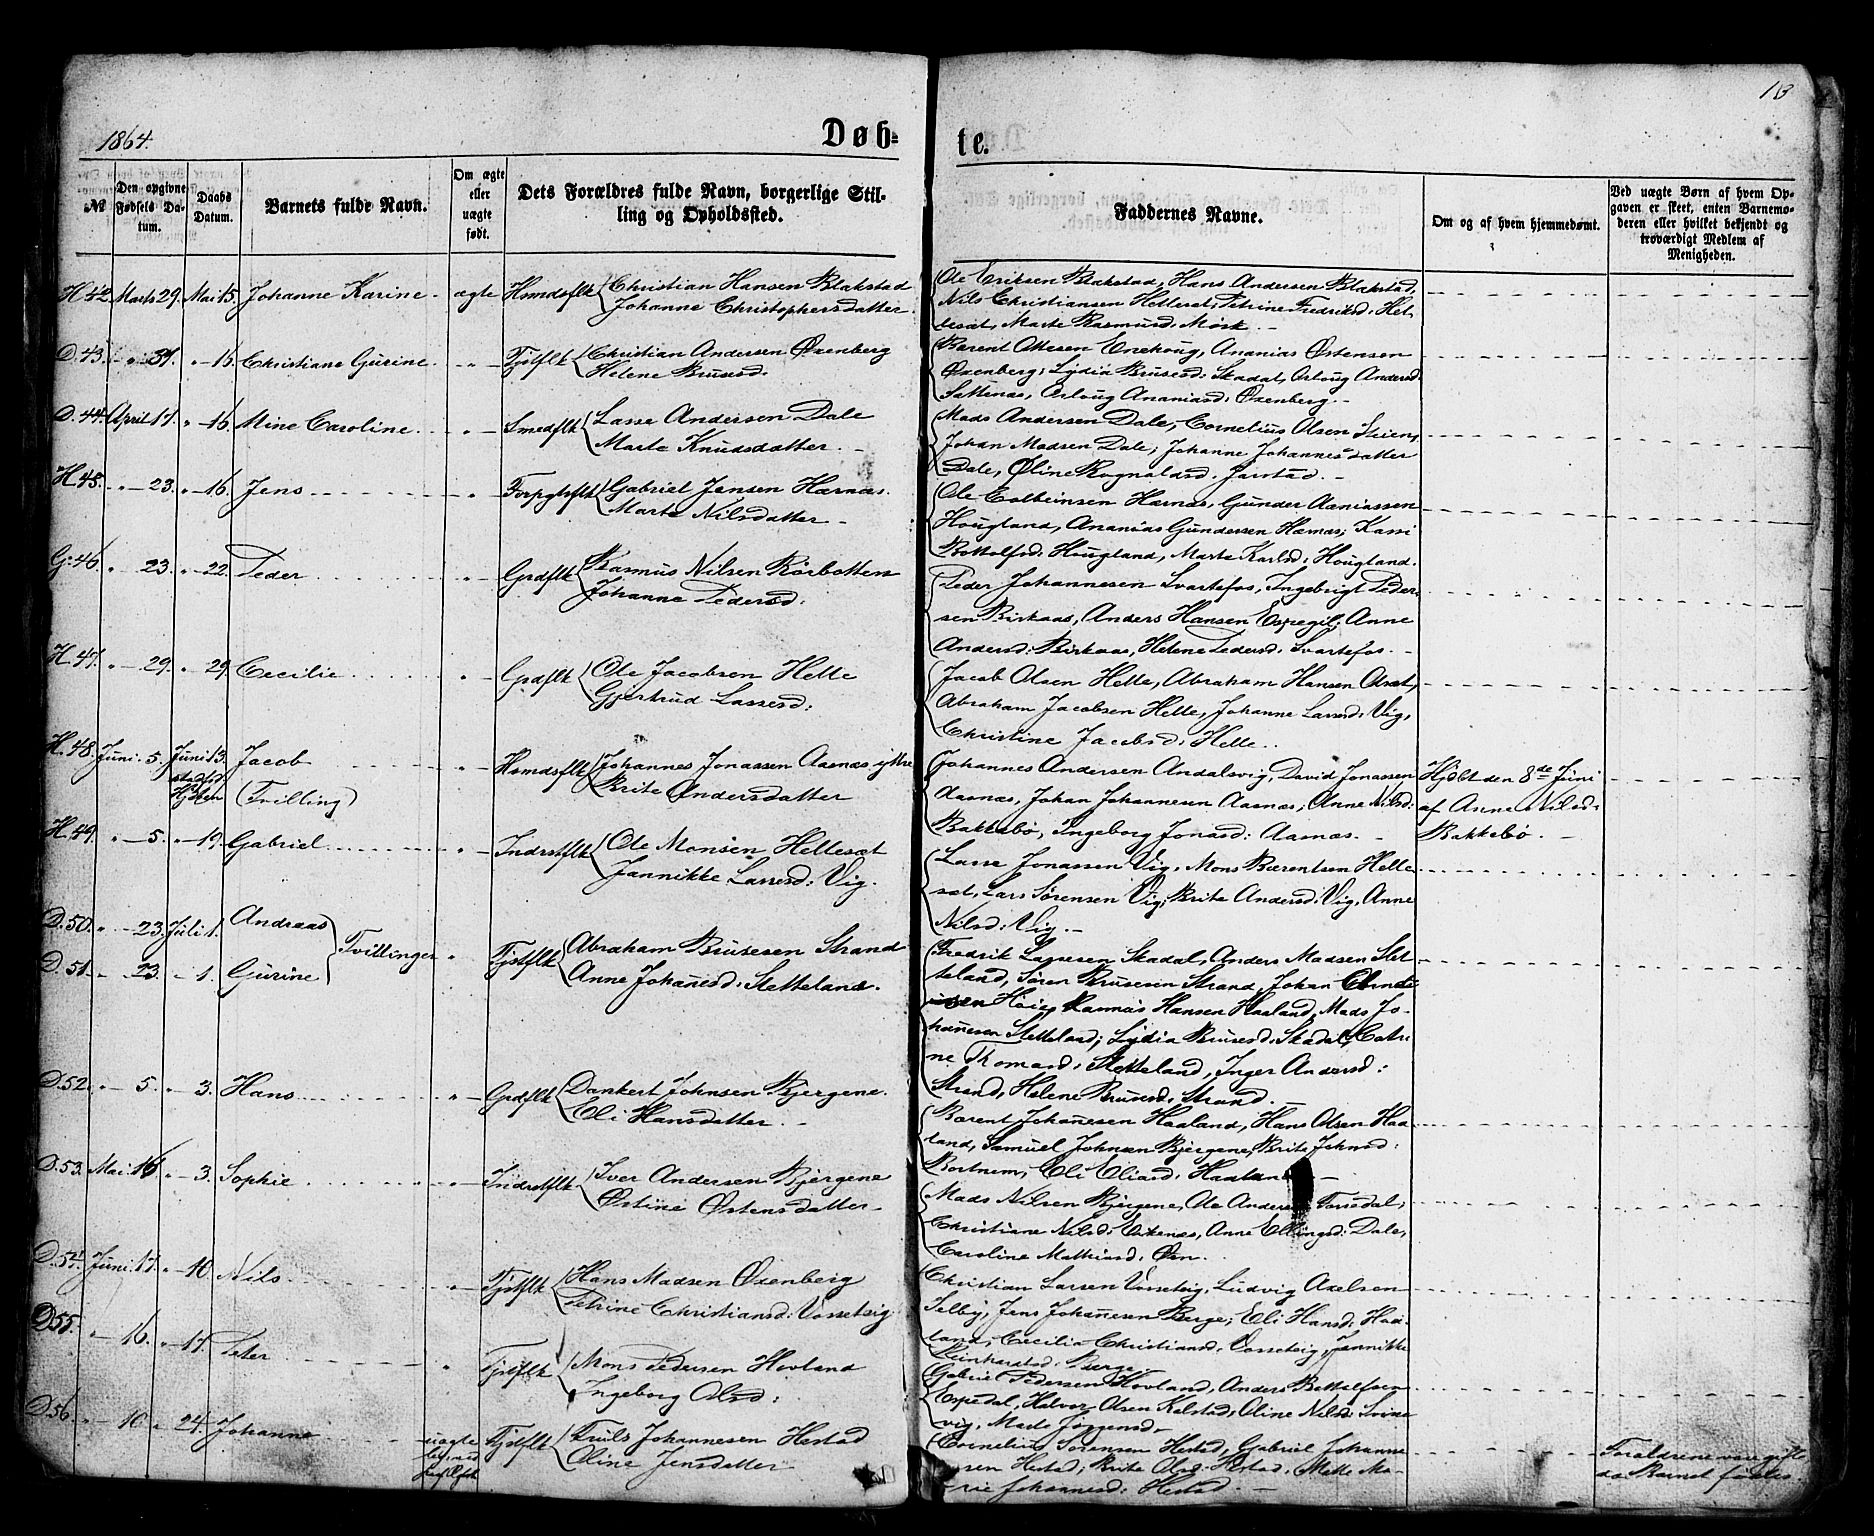 1864.
Døb=
te.
13
№
Den opgivne Fødsels Datum.
Daabs Datum.
Barnets fulde Navn.
Om ægte eller uægte født.
Dets Forældres fulde Navn, borgerlige Stilling og Opholdssted.
Faddernes Navne.
Om og af hvem hjemmedømt.
Ved uægte Børn af hvem Opgaven er skeet, enten Barnemoderen eller hvilket bekjendt og troværdigt Medlem af Menigheden.
H 42. Marts 29. Mai 15. Johanne Karine ægte Hsmdsflk Christian Hansen Blakstad
Johanne Christophersdatter.
Ole Eriksen Blakstad, Hans Andersen Blakstad,
Nils Christiansen Hellesæt, Petrine Fredriksd: Hel-
lesæt, Marte Rasmusd: Mørk.
D. 43. " 31. " 15. Christiane Gurine " Fjstflk Christian Andersen Oxenberg
Helene Brusesd:
Bærent Ottesen Enekoug, Ananias Østensen
Oxenberg, Lydia Brusesd: Skadal, Asloug Andersd:
Sattenas, Asloug Ananiasd: Oxenberg.
D. 44. April 17. " 16. Mine Caroline " Smedflk Lasse Andersen Dale
Marte Knudsdatter
Mads Andersen Dale, Cornelius Olsen Steien,
Johan Madsen Dale; Johanne Johannesdatter
Dale, Øline Rognaldsd. Jarstad.
H 45. " 23. " 16. Jens " Gabriel Jensen Hærnæs.
Marte Nilsdatter
Ole Colbeinsen Hærnæs, Gunder Aaniassen
Hougland, Ananias Gundersen Hærnæs, Kari
Bottolfsd: Hougland, Marte Karlsd: Hougland.
G. 46 " 23. " 22. Peder " Grdflk Rasmus Nilsen Rørbotten
Johanne Pedersd:
Peder Johannesen Svartefos, Ingebrigt Peder-
sen Birkaas, Anders Hansen Espegil; Anne
Andersd: Birkaas, Helene Pedersd: Svartefos.
H. 47. " 29. " 29. Cecilie " Grdflk Ole Jacobsen Helle
Gjertrud Lassesd:
Jacob Olsen Helle, Abraham Hansen Olset,
Abraham Jacobsen Helle, Johanne Lassesd: Vig,
Christine Jacobsd: Helle.
H. 48. Juni 5. Juni 13. Jacob
(Tvilling) " Hsmdsflk Johannes Jonassen Aasnæs ytre
Brite Andersdatter
Johannes Andersen Andalsvig, David Jonassen
Aasnæs, Johan Johannesen Aasnæs; Anne Nilsd:
Bakkebø, Ingeborg Jonasd: Aasnæs.
Hjdbt den 8de Juni
af Anne Nilsd:
Bakkebø.
H. 49. " 5. " 19. Gabriel " Indrstflk Ole Monsen Hellesæt
Jannikke Lassesd: Vig.
Lasse Jonassen Vig, Mons Bærentsen Helle-
sæt, Lars Sørensen Vig; Brite Andersd: Vig, Anne
Nilsd: Vig.
D. 50. " 23. Juli 1. Andreas
D. 51. " 23. " 1. Gurine
Tvillinger " Fjstflk Abraham Brusesen Strand
Anne Johanesd: Sletteland.
Fredrik Lassesen Skadal, Anders Madsen Slet-
teland, Søren Brusesen Strand, Johan
Høie, Rasmus Hansen Haaland, Mads Jo-
hanesen Sletteland; Lydia Brusesd: Skadal, Catri-
ne Thomasd: Sletteland, Inger Andersd:
Strand, Helene Brusesd: Strand.
D. 52. " 5. " 3. Hans " Grdflk Dankert Johnsen Bjergene.
Eli Hansdatter
Bærent Johanesen Haaland, Hans Olsen Haa-
land, Samuel Johnsen Bjergene, Brite Johnsd:
Bortnem, Eli Eliasd: Haaland
D. 53. Mai 16 " 3. Sophie " Indrstflk Iver Andersen Bjergene
Østine Østensdatter
Mads Nilsen Bjergene, Ole Andersen Torsedal,
Christiane Nilsd: Birkenæs, Anne Ellingsd: Dale,
Caroline Mathiasd: Øen.
D. 54. Juni 17. " 10. Nils " Fjstflk Hans Madsen Oxenberg
Petrine Christiansd: Vosseteig.
Christian Larsen Vosseteig, Ludvig Axelsen
Selby, Jens Johanesen Berge; Eli Hansd: Haa-
land, Cecilia Christiansd: Vosseteig, Jannikke
Reinhartsd: Berge.
D. 55. " 16. " 17. Peter " Fjstflk Mons Pedersen Hovland
Ingeborg Olsd:
Gabriel Pedersen Hovland, Anders Bottolfsen
Espedal, Halvor Olsen Kalstad, Oline Nilsd: Svine-
vig, Marte Jørgensd.
D. 56. " 10. " 24. Johanne uægte Fjstflk Truls Johannesen Hestad
Oline Jensdatter
Cornelius Sørensen Hestad, Gabriel Johanne-
sen Hestad; Brite Olsd: Hestad, Mette Ma-
rie Johannesd: Hestad.
Forældrene vare gifte
da Barnet fødtes.